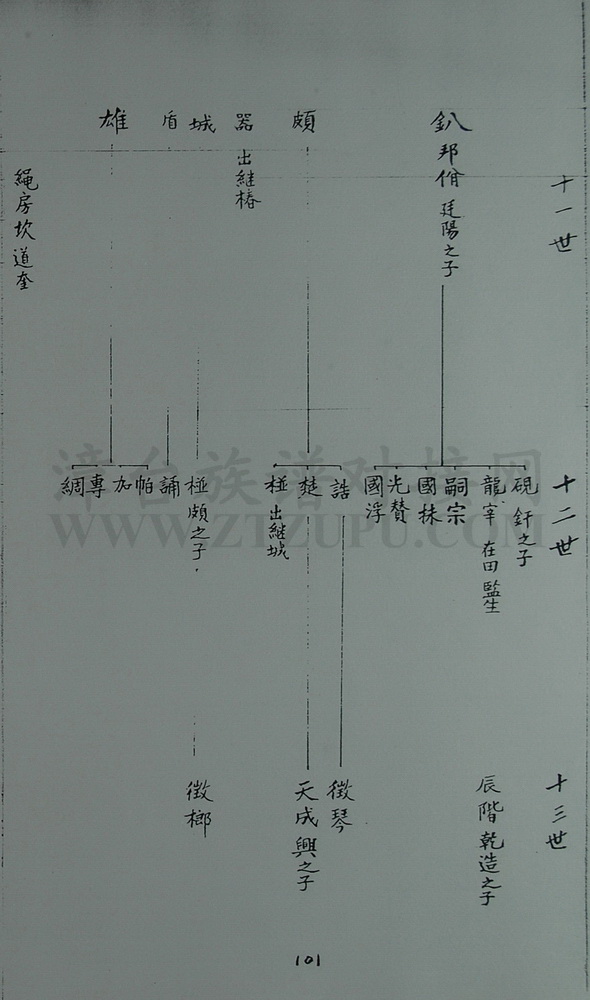 十一世
釟 邦俏 廷陽之子
頗
器 出繼椿
城
盾
雄
繩房坎道奎
十二世
硯 釬之子
龍宰 在田 監生
嗣宗
國抹
光贊
國浮
誥
楚
椪 出繼城
椪 頗之子
誦
帕
加
專
綢
十三世
辰階 乾造之子
徵琴
天成 興之子
徵榔
漳台族谱对接网
WWW.ZTZUPU.COM
101